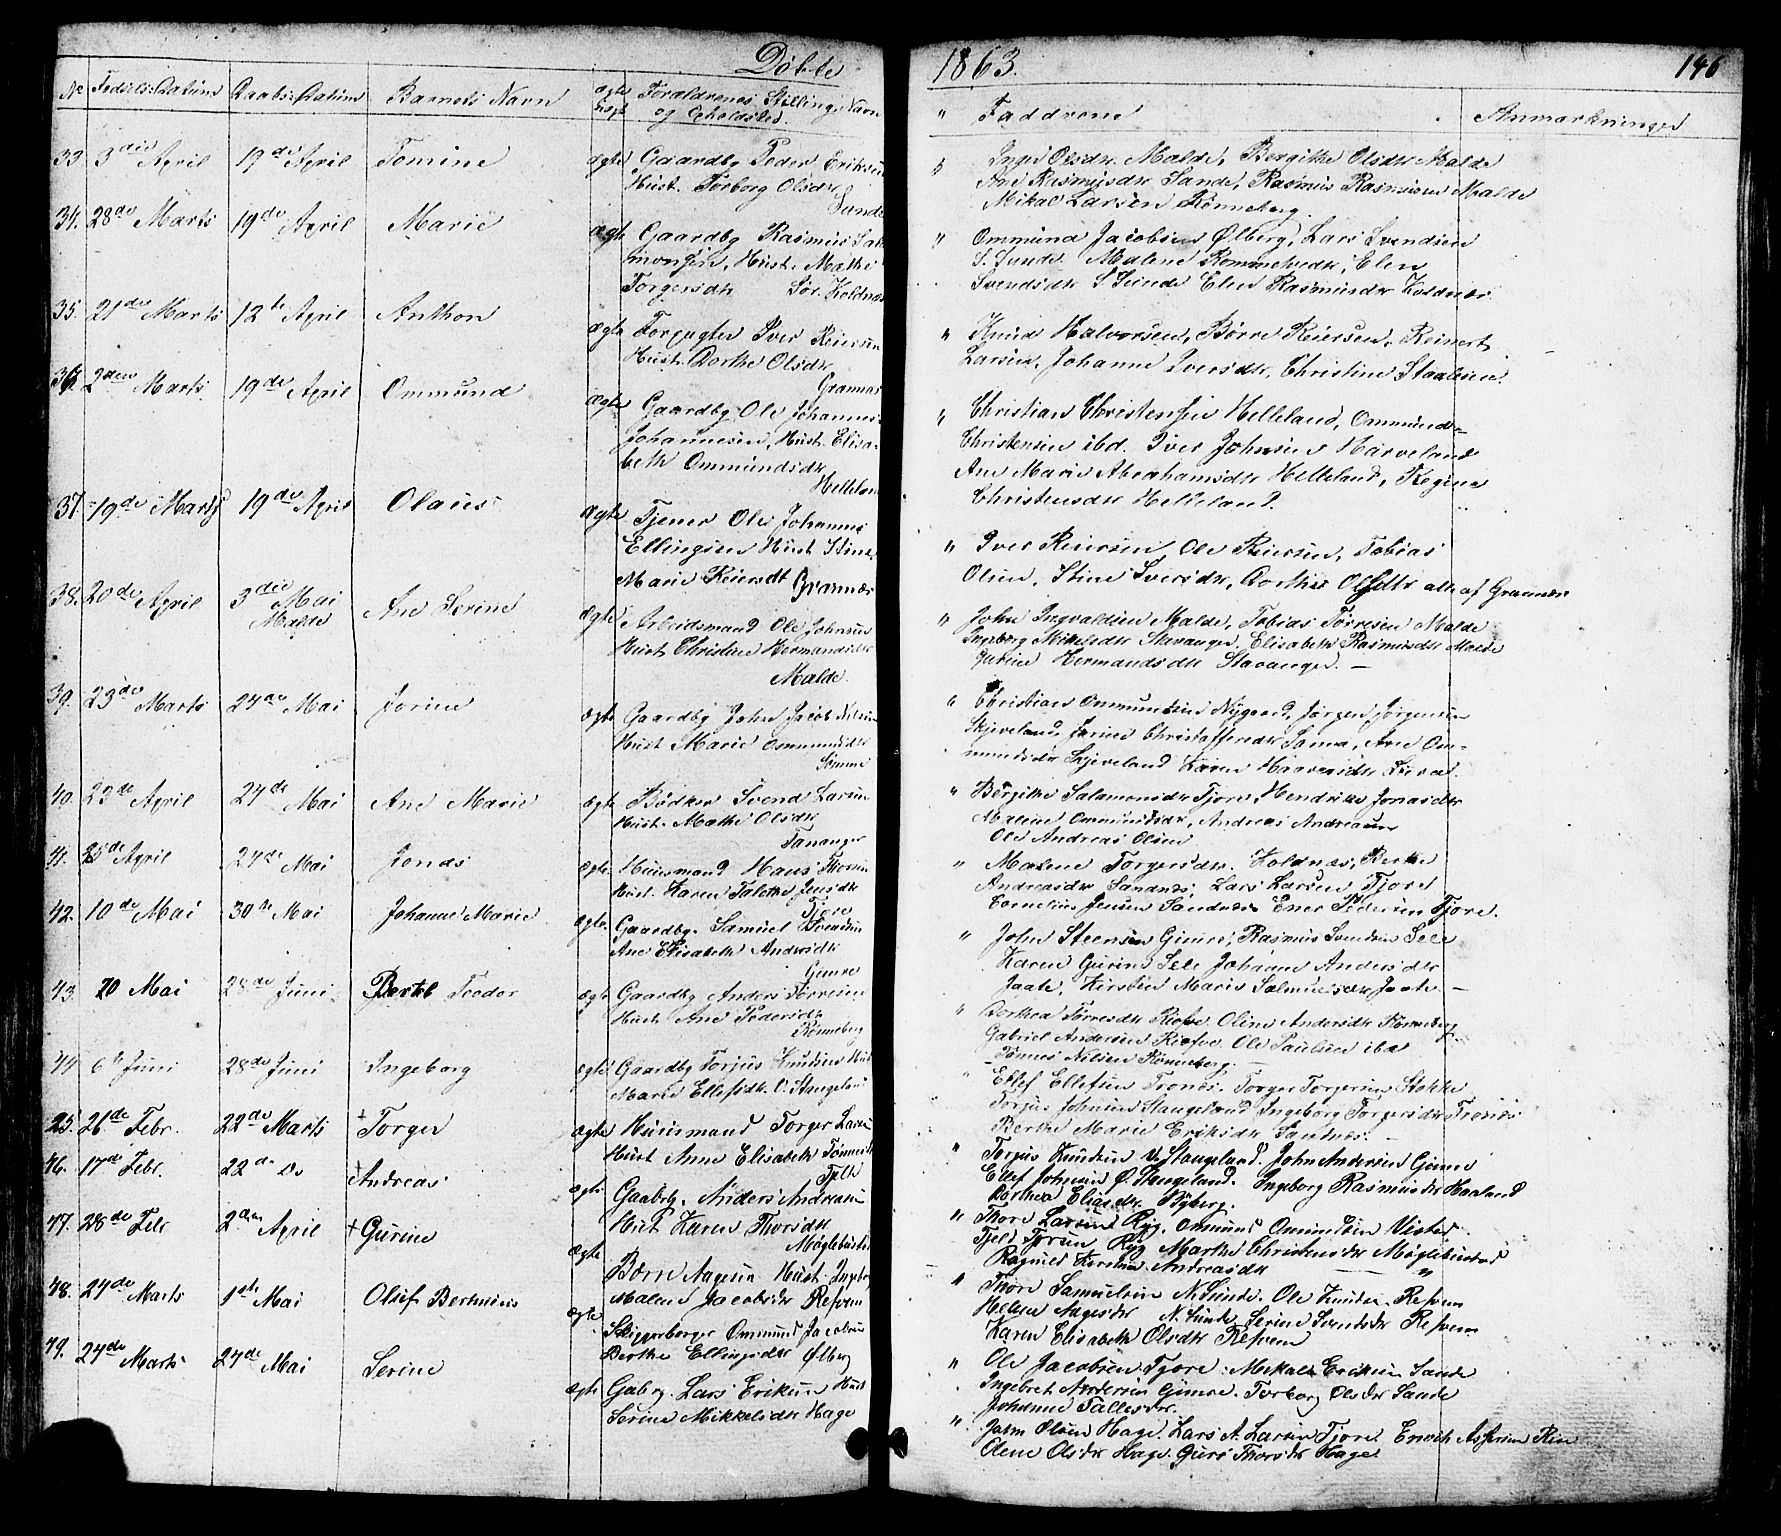 Döbte
1863.
146
No Fødsels-Datum Daabs-Datum Barnets Navn ægte uægt Forældrenes Stilling, Navn
og Opholdsted.
" Faddrene Anmærkninger
33 3die April 19de April Tomine ægte Gaardbg Peder Eriksen
Hust. Torborg Olsdtr
Sande
" Inger Olsdtr. Malde, Bergithe Olsdtr Malde
Ane Rasmusdtr Sande, Rasmus Rasmusen Malde
Mikal Larsen Rönneberg.
34. 28de Marts 19de April Marie ægte Gaardbg Rasmus Salo
monsen, Hust. Malhe
Torgersdtr Sör. Kolnæs
" Ommund Jacobsen Ølberg, Lars Svendsen
S. Sunde. Malene Rommetvedt, Elen
Svendsdtr S Sunde Elen Rasmusdtr Koldnæs.
35. 21de Marts 12te April Anthon ægte Forpagter Iver Reiersen
Hust. Dorthe Olsdtr
Grannæs
" Knud Halvorsen, Börre Reiersen, Reinert
Larsen, Johanne Iversdtr, Christine Staalesen.
36. 2den Marts 19de April Ommund ægte Gaardbg Ole Johannes
Johannesen, Hust. Elisa-
beth Ommundsdtr
Helleland
" Christian Christensen Helleland, Ommund
Christensen ibd. Iver Johnsen Harveland
Ane Marie Abrahamsdtr Helleland, Regine
Christensdtr Helleland.
37. 19de Marts 19de April Olaus ægte Tjener Ole Johannes
Ellingsen Hust Stine
Marie Reiersdt Grannæs
" Iver Reiersen, Ole Reiersen, Tobias
Olsen, Stine Iversdtr, Dorthe Olsdtr alle af Grannæs
38. 20de April 3die Mai
Malde Ane Serine ægte Arbeidsmand Ole Johnsen
Hust Christine Hermandsdtr
Malde.
" John Ingvaldsen Malde, Tobias Törresen Malde
Ingeborg Mikkelsdtr Stavanger, Elisabeth Rasmusdtr Malde
Gurine Hermandsdtr Stavanger. —
39. 23de Marts 24de Mai Jorine ægte Gaardbg John Jacob Nilsen
Hust Marie Ommundsdtr
Sömme
" Christian Ommundsen Nygaard, Jörgen Jörgensen
Skjeveland, Jorine Christoffersdtr Soma, Ane Om-
mundsdtr Skjeveland Karen
40. 23de April 24de Mai Ane Marie ægte Bödker Svend Larsen
Hust. Malhe Olsdtr
Tananger
" Bergithe Salamonsdtr Tjore, Hendrikke Jonasdtr
Malene Ommundsdtr, Andreas Andreasen
Ole Andreas Olsen
41. 25de April 24de Mai Jonas ægte. Huusmand Hans Thorsen
Hust. Karen Talethe Jensdtr
Tjore
" Malene Torgersdtr. Koldnæs, Berthe
Andreasdtr Sandnes, Lars Larsen Tjore
Cornelius Jensen Sandnæs Ener Pedersen Tjore.
42. 10de Mai 30te Mai Johanne Marie ægte. Gaardbg. Samuel Svendsen
Ane Elisabeth Andersdtr
Gimre
" John Steensen Gimre, Rasmus Svendsen Sele
Karen Gurine Sele Johanne Andersdtr
Jaate, Kirsten Marie Salmuelsdtr Jaate —
43. 20 Mai 28de Juni Bertel Teodor ægte Gaardbg Anders Törresen
Hust Ane Pedersdtr
Rönneberg
" Dorthea Törresdtr Risøe Oline Andersdtr Rönneberg
Gabriel Andersen Risøe Ole Paulsen ibd
Tönnes Nilsen Rönneberg.
44 6te Juni 28de Juni Ingeborg ægte Gaardbg Torjus Knudsen Hust
Marie Ellefsdtr. V. Stangeland
" Ellef Ellefsen Tronæs. Torger Torgersen Stokke
Torjus Johnsen Stangeland Ingeborg Torgersdtr Tronæs
Berthe Marie Eriksdtr Sandnes. —
25. 26de Febr. 22de Marts + Torger ægte Huusmand Torger Larsen
Hust Anne Elisabeth Tönnesdtr
Tjelte
" Torjus Knudsen V. Stangeland. John Andersen Gimre
Ellef Johnsen Ø. Stangeland. Ingeborg Rasmusdtr Haaland
Dorthea Eliasdtr Nyberg.
46. 17de Febr. 22de Do + Andreas ægte. Gaabrbg. Anders Andreasen
Hust Karen Thorsdtr
Möglebustad
" Thore Larsen Ryg, Ommund Ommundsen Vistad
Tjeld Tjorsen Ryg Marthe Christensdtr Möglebustad
Ragnild Kirstine Andreasdtr — "
47. 28de Febr 2den April + Gurine ægte Børre Aagesen Hust. Ingeborg
Malene Jacobsdtr Refsnes
" Thore Samuelsen N. Sunde. Ole Knudsen Refsnes
Helene Aagesdtr N. Sunde Serine Svendsdtr Refsnes
Karen Elisabeth Olsdtr Refsnes
48. 24de Marts 1ste Mai Oluf Berthinius ægte. Skipperborger Ommund Jacobsen
Berthe Ellingsdtr Ølberg
" Ole Jacobsen Tjore. Mikale Eriksen Sande
Ingebret Andersen Gimre. Torborg Olsdtr Sande
Johanne Tallesdtr.
49. 24de Marts 24de Mai Serine ægte Gabrg. Lars Eriksen Hust
Serine Mikkelsdtr Hage
" John Olsen Hage. Lars A. Larsen Tjore. Enoch Asserson Ree
Olene Olsdtr Hage. Guro Thorsdtr Hage.